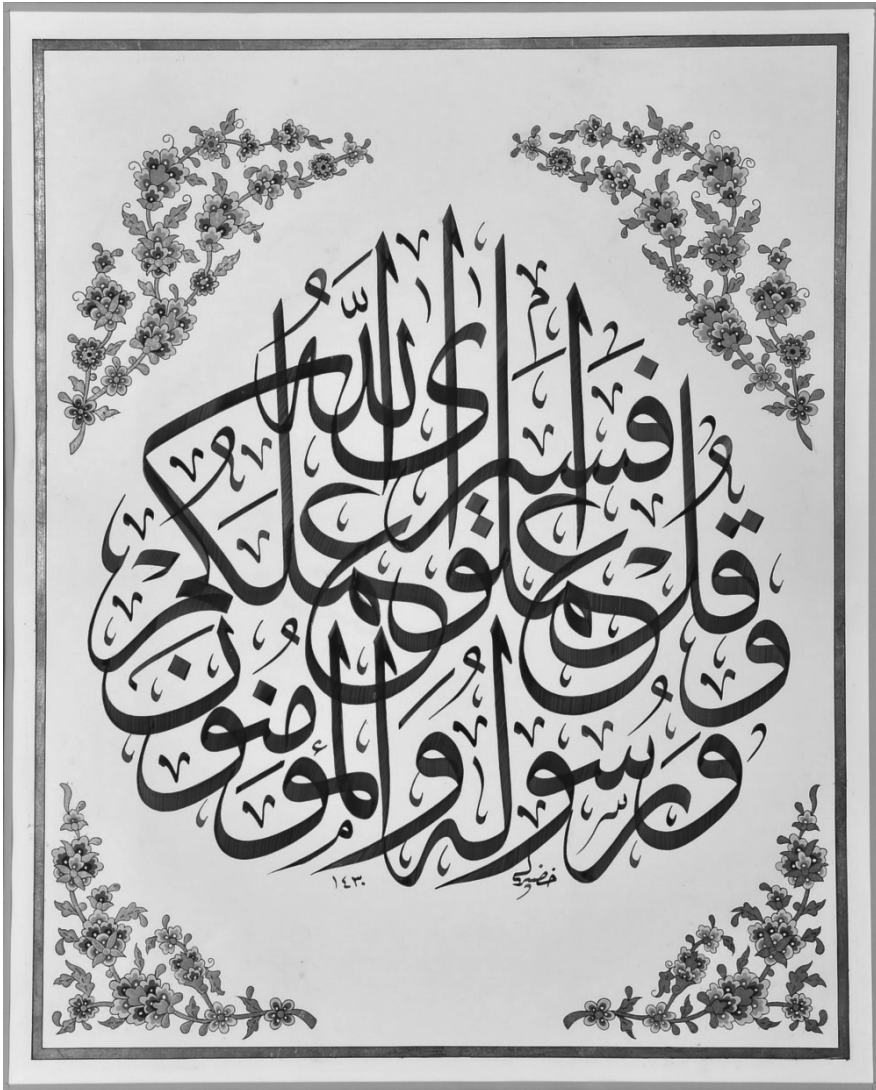 وقل اعملوا فسيرى الله عملكم
ورسوله والمؤمنون
١٤٣٠